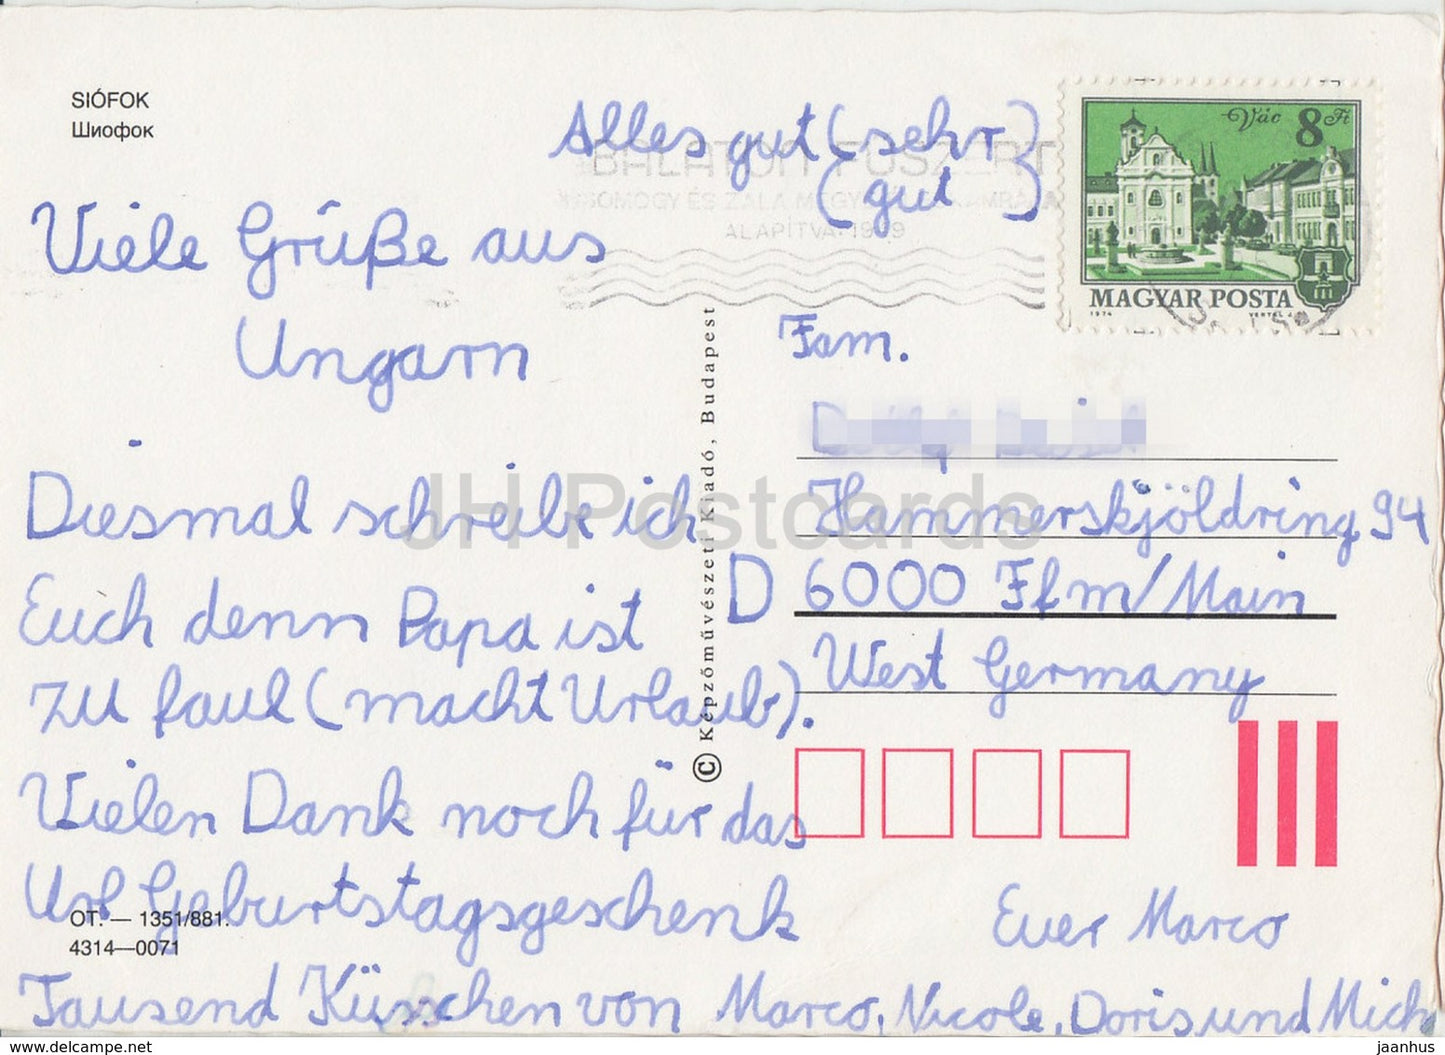 SIÓFOK
Шиофок
Alles gut (sehr)
(gut)
BALATON FŰSZERT
SOMOGY ÉS ZALA MEGY
ALAPÍTVA: 19 9
Vác 8 Ft
MAGYAR POSTA
1974 VERTEL J.
Viele Grüße aus
Ungarn
Diesmal schreibe ich
Euch denn Papa ist
zu faul (macht Urlaub).
Vielen Dank noch für das
Url Geburtstagsgeschenk
Tausend Küsschen von Marco, Nicole, Doris und Mich
Euer Marco
Fam.
Hammerskjöldring 94
D 6000 Ffm/Main
West Germany
© Képzőművészeti Kiadó, Budapest
OT. — 1351/881.
4314—0071
JH Postcards
www.delcampe.net
jaanhus